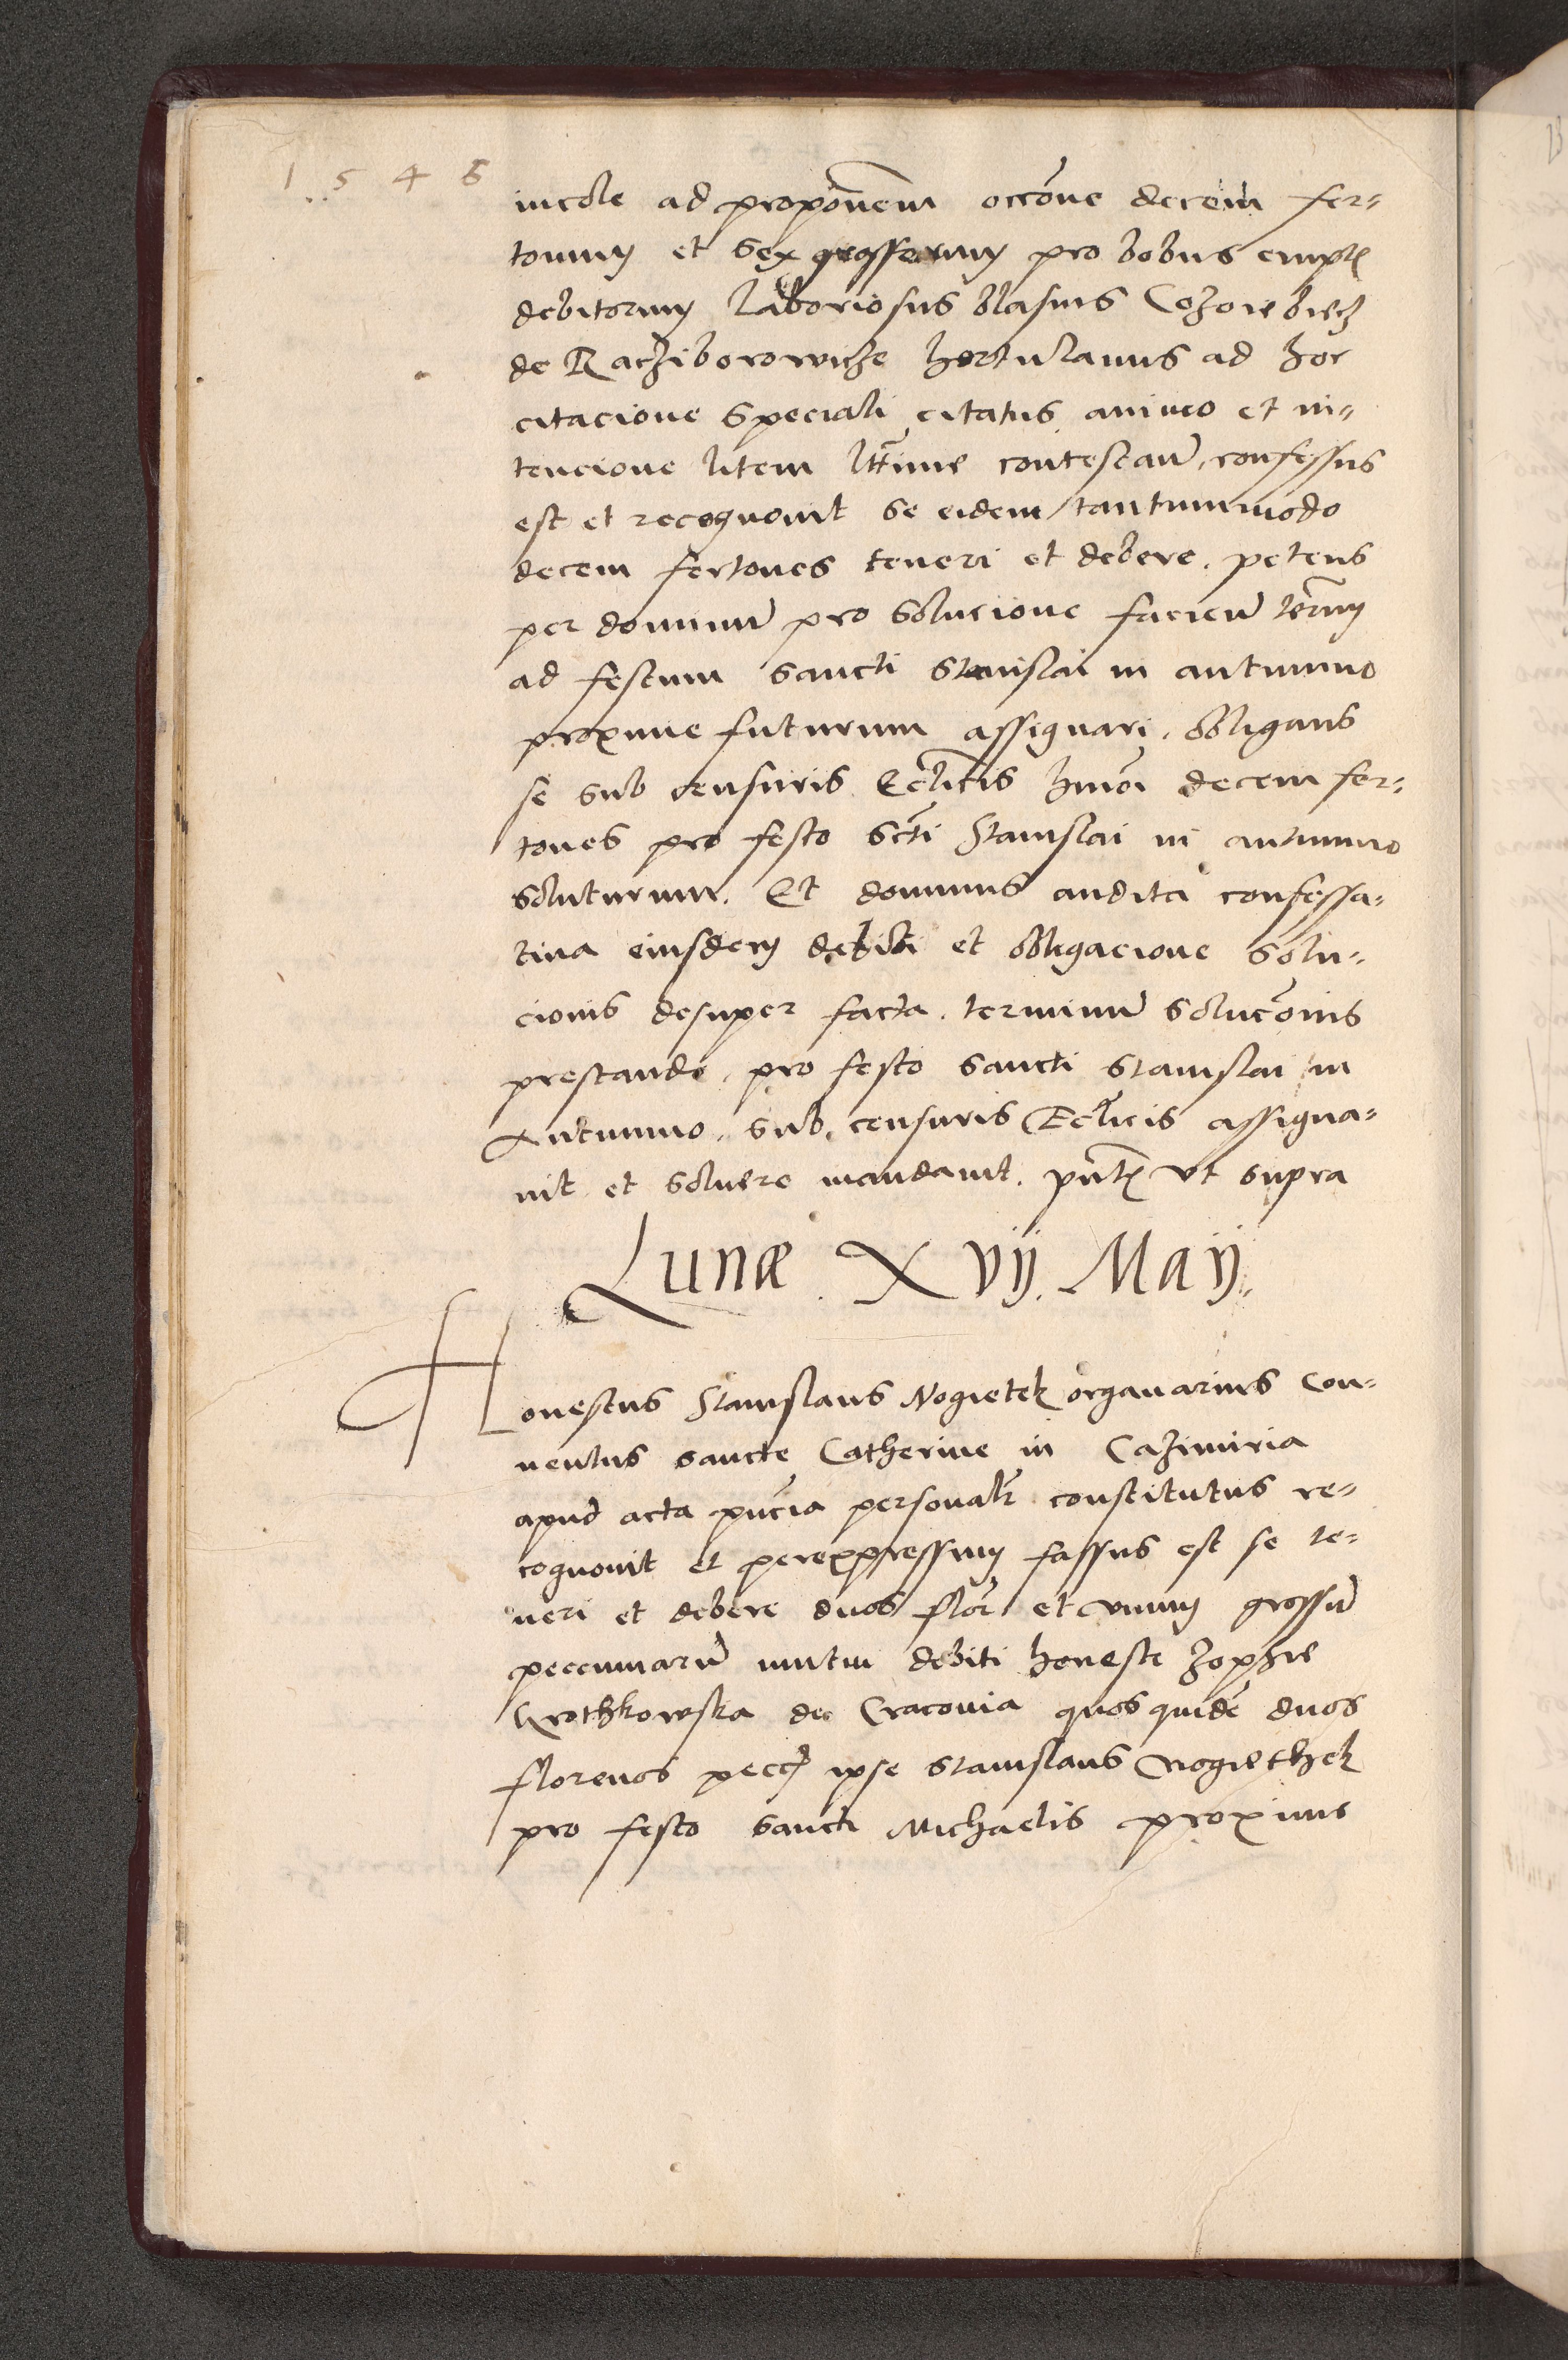 1 5 4 6
incole ad proponem occone decem fer=
tonum et sex grossorum pro bobus empt
debitorum laboriosus blasius Cozorebiecz
de Racziborowicze hortulanus ad hoc
citacione speciali citatus animo et in=
tencione litem lttime contestan, confessus
est et recognouit se eidem tantummodo
decem fertones teneri et debere. petens
per dominu pro solucione facien termm
ad festum sancti Stanislai in autumno
proxime futurum assignari. obligans
se sub censuris Ecclicis hmoi decem fer=
tones pro festo scti Stanislai in autumno
soluturum. Et dominus audita confessa=
tiua eiusdem debiti et obligacione solu=
cionis desuper facta. terminu soluconis
prestande, pro festo sancti Stanislai in
Autumno, sub censuris Ecclicis assigna=
uit et soluere mandauit. pntt vt supra
Lunæ. Xvij. Maij.
Honestus Stanislaus Nogietek organarius Con=
uentus sancte Catherine in Cazimiria
apud acta pncia personalr constitutus re=
cognouit et perexpressum fassus est se te=
neri et debere duos flor et vnum grossu
peccuniaru mutui debiti honeste Zophie
Krothkowska de Cracouia quos quide duos
florenos pecc ipse Stanislaus Nogiethek
pro festo sancti Michaelis proxime